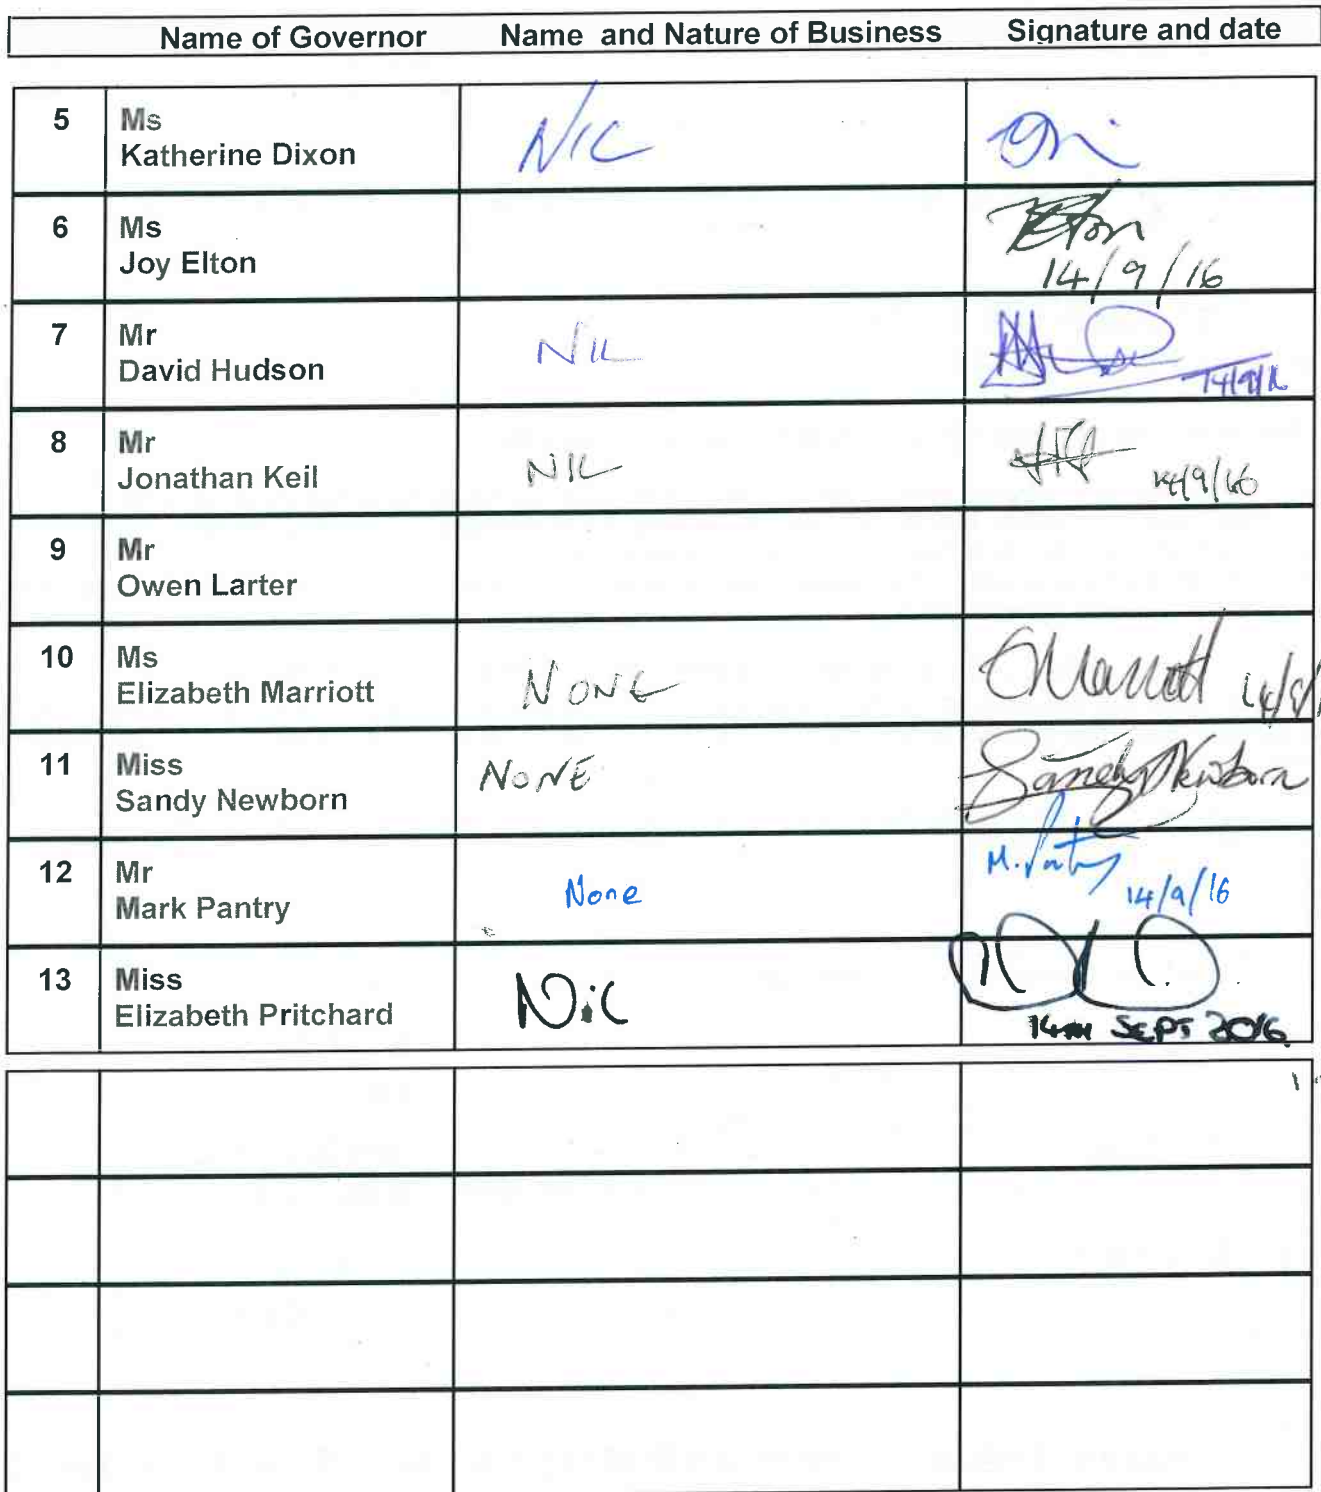 Name of Governor Name and Nature of Business Signature and date
5 Ms
Katherine Dixon NIL
6 Ms
Joy Elton Elton
14/9/16
7 Mr
David Hudson NIL
14/9/16
8 Mr
Jonathan Keil NIL 14/9/16
9 Mr
Owen Larter
10 Ms
Elizabeth Marriott NONE EMarriott
11 Miss
Sandy Newborn NONE Sandy Newborn
12 Mr
Mark Pantry None M. Pantry
14/9/16
13 Miss
Elizabeth Pritchard Nil
14TH SEPT 2016